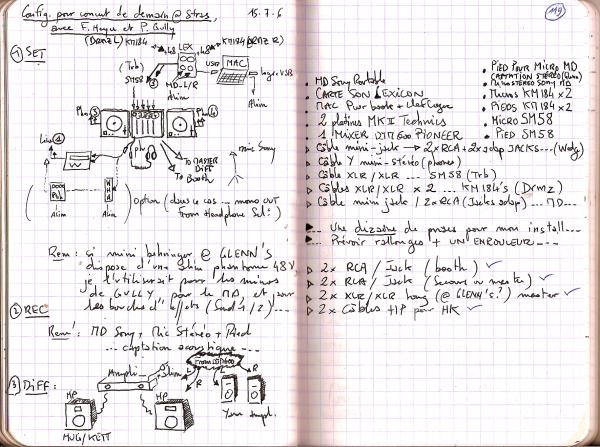 Config. pour concert de demain @ Stras,
15.7.6
avec F. Meyer et P. Gully
(DRMZ L) KM184
48
LEX
48
KM184 (DRMZ R)
① SET
USB
MAC
(Trb)
SM58
MD-L/R
Alim
logic+VSB
Alim
Pho 3
Pho 4
Line 1
ph
To MASTER
Diff
To Booth
mic Sony
Alim
Alim
option (dans le cas ... mono OUT
from Headphone Sel!)
Rem: Si mini behringer @ GLENN'S
dispose d'une alim phantome 48V
je l'utiliserai pour les micros
de GULLY pour le MD et pour
les boucles d'effets (Send 1/2)...
② REC
Rem: MD Sony, Mic Stéréo + Pied
... captation acoustique ...
③ DIFF:
Ampli
Alim
From DJM600
L
R
L
R
HP
HP
MUG/KETT
Yam ampl.
119
• MD Sony Portable
• CARTE SON LEXICON
• MAC Pwr book + clef Logic
• 2 platines MKII Technics
• 1 MIXER DJM 600 PIONEER
• PIED POUR MICRO MD
CAPTATION STEREO
• Micro STEREO SONY MD
• Micros KM184 x 2
• PIEDS KM184 x 2
• MICRO SM58
• PIED SM58
▹ Câble mini-jack → 2xRCA + 2x adap JACKS...
▹ Câble Y mini-stéréo (phones)
▹ Câble XLR/XLR ... SM58 (Trb)
▹ Câbles XLR/XLR x 2 ... KM184's (Drmz)
▹ Câble mini jack / 2xRCA (Jacks adap) ... MD...
▸ .. Une dizaine de prises pour mon install....
▸ ... Prévoir rallonges + UN ENROULEUR...
▹ 2x RCA / Jack (booth) ✓
▹ 2x RCA / Jack (Secours or master) ✓
▹ 2x XLR/XLR long (@ GLENN'S?) master ✓
▹ 2x Câbles HP pour HK ✓